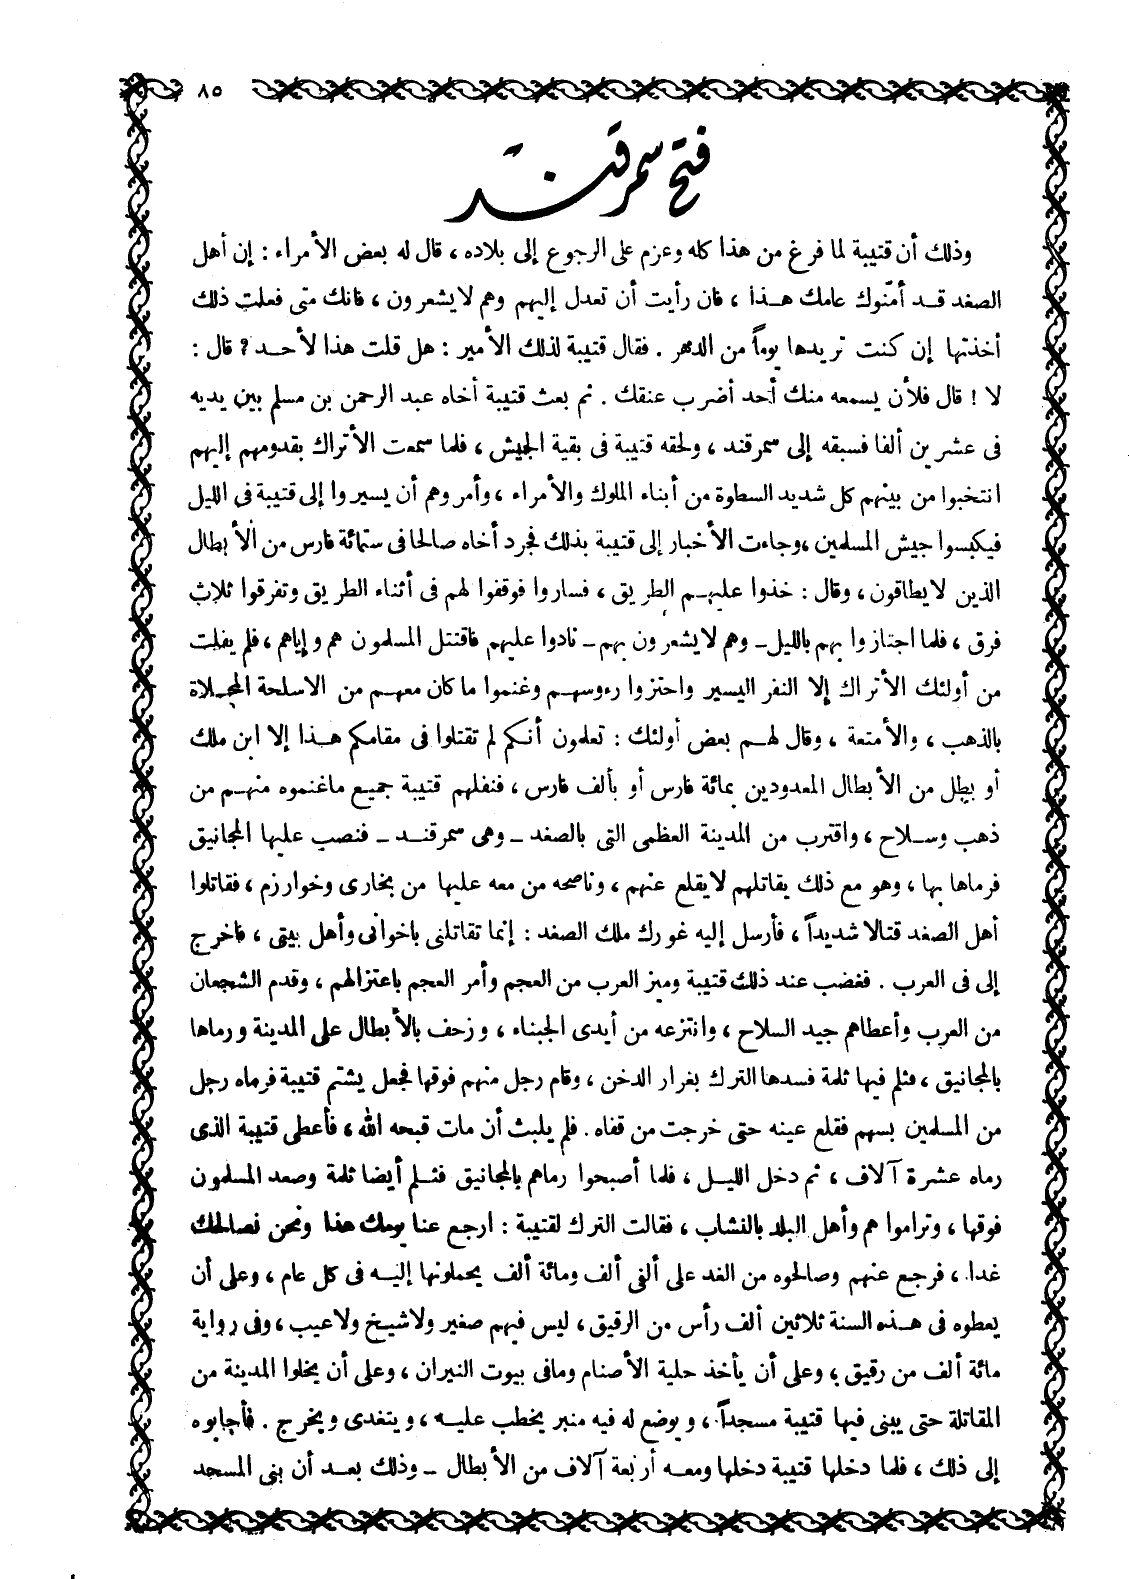 ٨٥
فتح سمرقند
وذلك أن قتيبة لما فرغ من هذا كله وعزم على الرجوع إلى بلاده ، قال له بعض الأمراء : إن أهل
الصغد قد أمّنوك عامك هذا ، فان رأيت أن تعدل إليهم وهم لا يشعرون ، فانك متى فعلت ذلك
أخذتها إن كنت تريدها يوماً من الدهر . فقال قتيبة لذلك الأمير : هل قلت هذا لأحد ؟ قال :
لا ! قال فلأن يسمعه منك أحد أضرب عنقك . ثم بعث قتيبة أخاه عبد الرحمن بن مسلم بين يديه
فى عشرين ألفا فسبقه إلى سمرقند ، ولحقه قتيبة فى بقية الجيش ، فلما سمعت الأتراك بقدومهم إليهم
انتخبوا من بينهم كل شديد السطوة من أبناء الملوك والأمراء ، وأمروهم أن يسيروا إلى قتيبة فى الليل
فيكبسوا جيش المسلمين ، وجاءت الأخبار إلى قتيبة بذلك فجرد أخاه صالحا فى ستمائة فارس من الأبطال
الذين لا يطاقون ، وقال : خذوا عليهم الطريق ، فساروا فوقفوا لهم فى أثناء الطريق وتفرقوا ثلاث
فرق ، فلما اجتازوا بهم بالليل ـ وهم لا يشعرون بهم ـ نادوا عليهم فاقتتل المسلمون هم وإياهم ، فلم يفلت
من أولئك الأتراك إلا النفر اليسير واحتزوا رءوسهم وغنموا ما كان معهم من الاسلحة المحلاة
بالذهب ، والأمتعة ، وقال لهم بعض أولئك : تعلمون أنكم لم تقتلوا فى مقامكم هذا إلا ابن ملك
أو بطل من الأبطال المعدودين بمائة فارس أو بألف فارس ، فنفلهم قتيبة جميع ماغنموه منهم من
ذهب وسلاح ، واقترب من المدينة العظمى التى بالصغد ـ وهى سمرقند ـ فنصب عليها المجانيق
فرماها بها ، وهو مع ذلك يقاتلهم لا يقلع عنهم ، وناصحه من معه عليها من بخارى وخوارزم ، فقاتلوا
أهل الصغد قتالا شديداً ، فأرسل إليه غورك ملك الصغد : إنما تقاتلنى باخوانى وأهل بيتى ، فاخرج
إلى فى العرب . فغضب عند ذلك قتيبة وميز العرب من العجم وأمر العجم باعتزالهم ، وقدم الشجعان
من العرب وأعطاهم جيد السلاح ، وانتزعه من أيدى الجبناء ، وزحف بالأبطال على المدينة ورماها
بالمجانيق ، فثلم فيها ثلمة فسدها الترك بغرار الدخن ، وقام رجل منهم فوقها فجعل يشتم قتيبة فرماه رجل
من المسلمين بسهم فقلع عينه حتى خرجت من قفاه . فلم يلبث أن مات قبحه الله ، فأعطى قتيبة الذى
رماه عشرة آلاف ، ثم دخل الليل ، فلما أصبحوا رماهم بالمجانيق فثلم أيضا ثلمة وصعد المسلمون
فوقها ، وتراموا هم وأهل البلد بالنشاب ، فقالت الترك لقتيبة : ارجع عنا يومك هذا ونحن نصالحك
غدا ، فرجع عنهم وصالحوه من الغد على ألفى ألف ومائة ألف يحملونها إليه فى كل عام ، وعلى أن
يعطوه فى هذه السنة ثلاثين ألف رأس من الرقيق ، ليس فيهم صغير ولا شيخ ولا عيب ، وفى رواية
مائة ألف من رقيق ، وعلى أن يأخذ حلية الأصنام ومافى بيوت النيران ، وعلى أن يخلوا المدينة من
المقاتلة حتى يبنى فيها قتيبة مسجداً ، ويوضع له فيه منبر يخطب عليه ، ويتغدى ويخرج . فأجابوه
إلى ذلك ، فلما دخلها قتيبة دخلها ومعه أربعة آلاف من الأبطال ـ وذلك بعد أن بنى المسجد